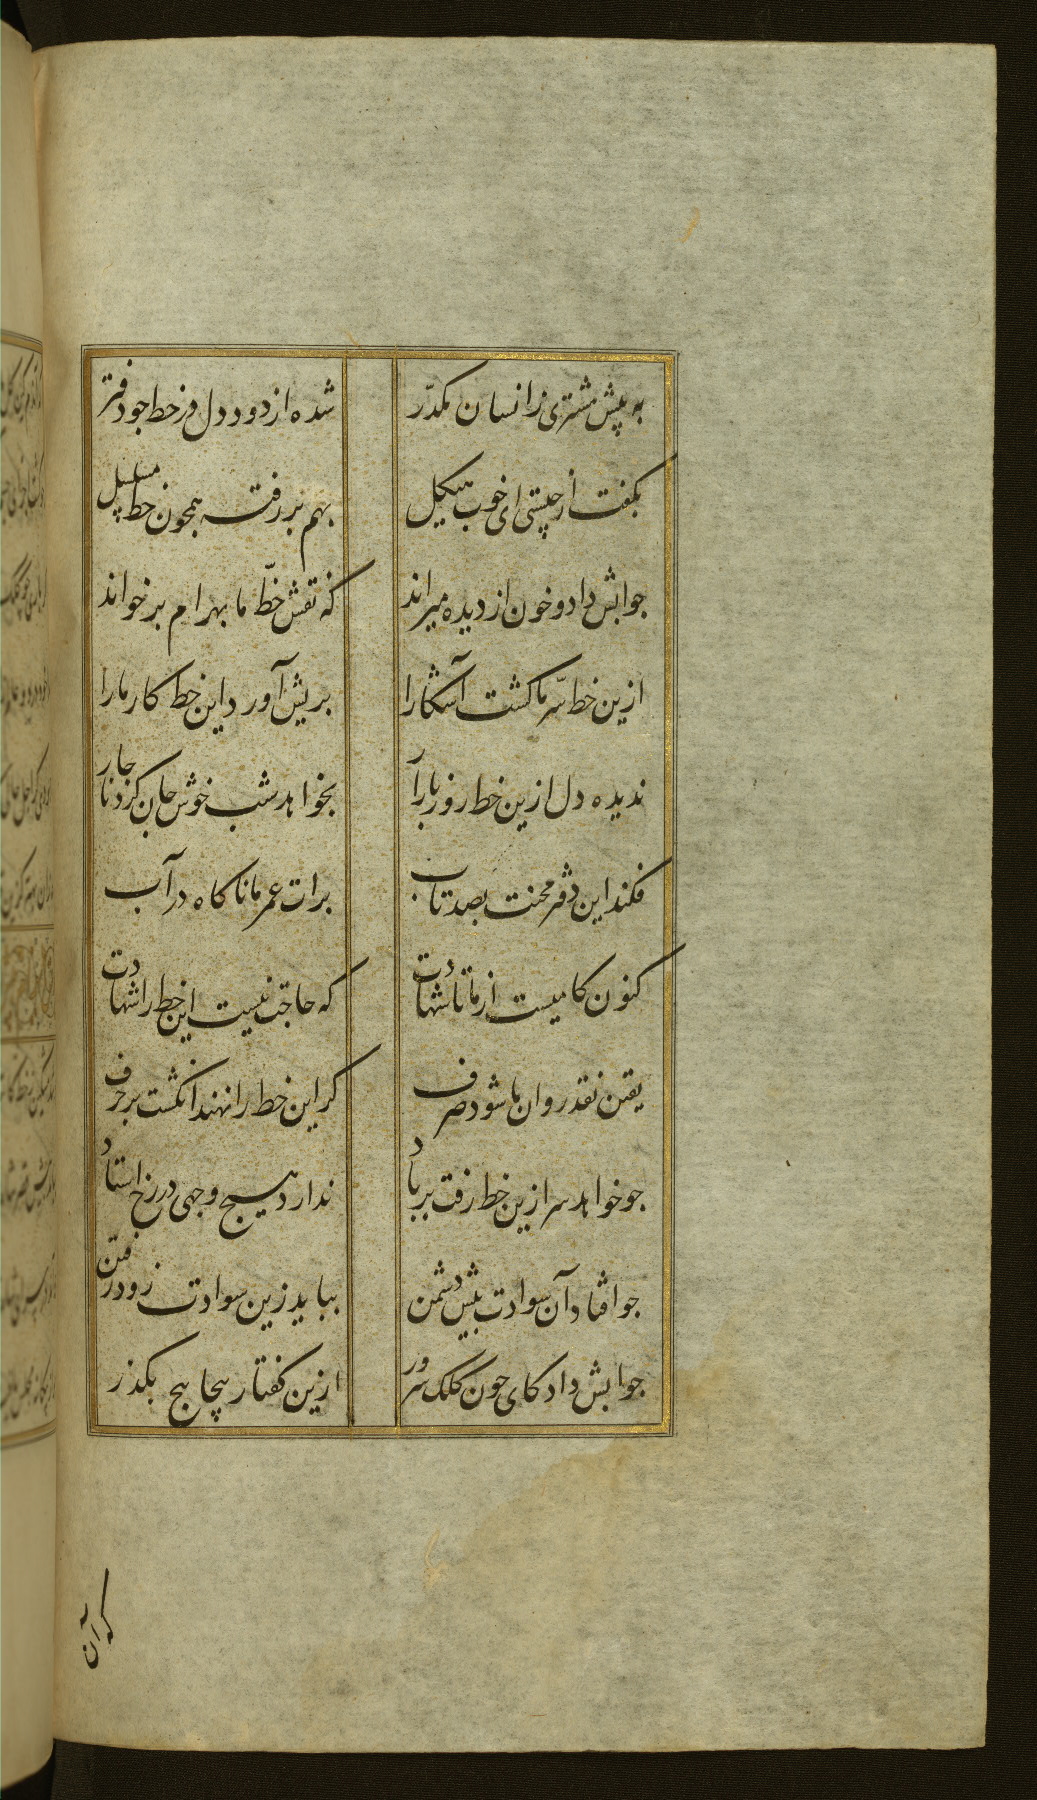 به پیش مشتری زانسان مکدّر
شده از دود دل وز خط جو دفتر
بکفت از جیستی ای خوب هیکل
بهم بر رفته همجون خط مسلسل
جوابش داد و خون از دیده میراند
که نقش خطّ ما بهرام بر خواند
ازین خط سرّ ما کشت آشکارا
بریش آورد این خط کار ما را
ندیده دل ازین خط روز بازار
بخواهد شب خوش جان کرد ناجار
فکند این دفتر محنت بصد تاب
برات عمر ما ناکاه در آب
کنون کامیست از ما تا شهادت
که حاجت نیست این خط را شهادت
یقین نقد روان ما شود صرف
کر این خط را نهند انکشت بر حرف
جو خواهد سر ازین خط رفت بر باد
ندارد هیج وجهی در رخ استاد
جو افتاد آن سوادت بیش دشمن
بباید زین سوادت زود رفتن
جوابش داد کای جون کلک سرور
ازین کفتار بیجابیج بکذر
که آن